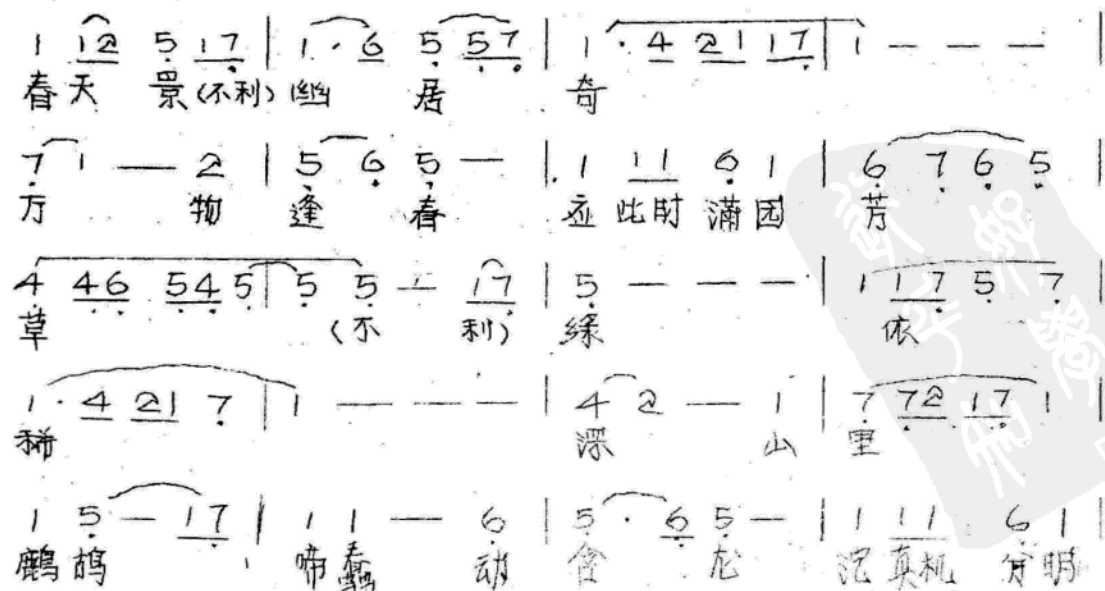 1 12 5 17 | 1 · 6 5 57 | 1 · 4 21 17 | 1 — — — |
春天 景(不利)幽 居 奇
7 1 — 2 | 5 6 5 — | 1 11 6 1 | 6 7 6 5 |
万 物 逢 春 应 此时 满园 芳
4 46 54 5 | 5 5 — 17 | 5 — — — | 1 17 5 7 |
草 (不 利) 绿 依
1 · 4 21 7 | 1 — — — | 4 2 — 1 | 7 72 17 1 |
稀 深 山 里
1 5 — 17 | 1 1 — 6 | 5 · 6 5 — | 1 11 6 1 |
鹧鸪 啼 春 动 真机 明